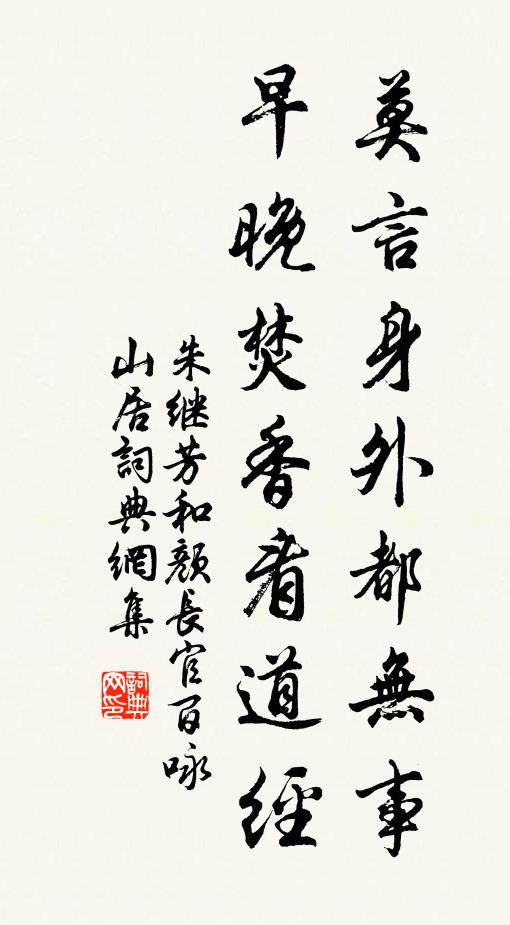 莫言身外都無事
早晚焚香看道經
朱继芳和颜長官百咏
山居詞典網集
詞典网印